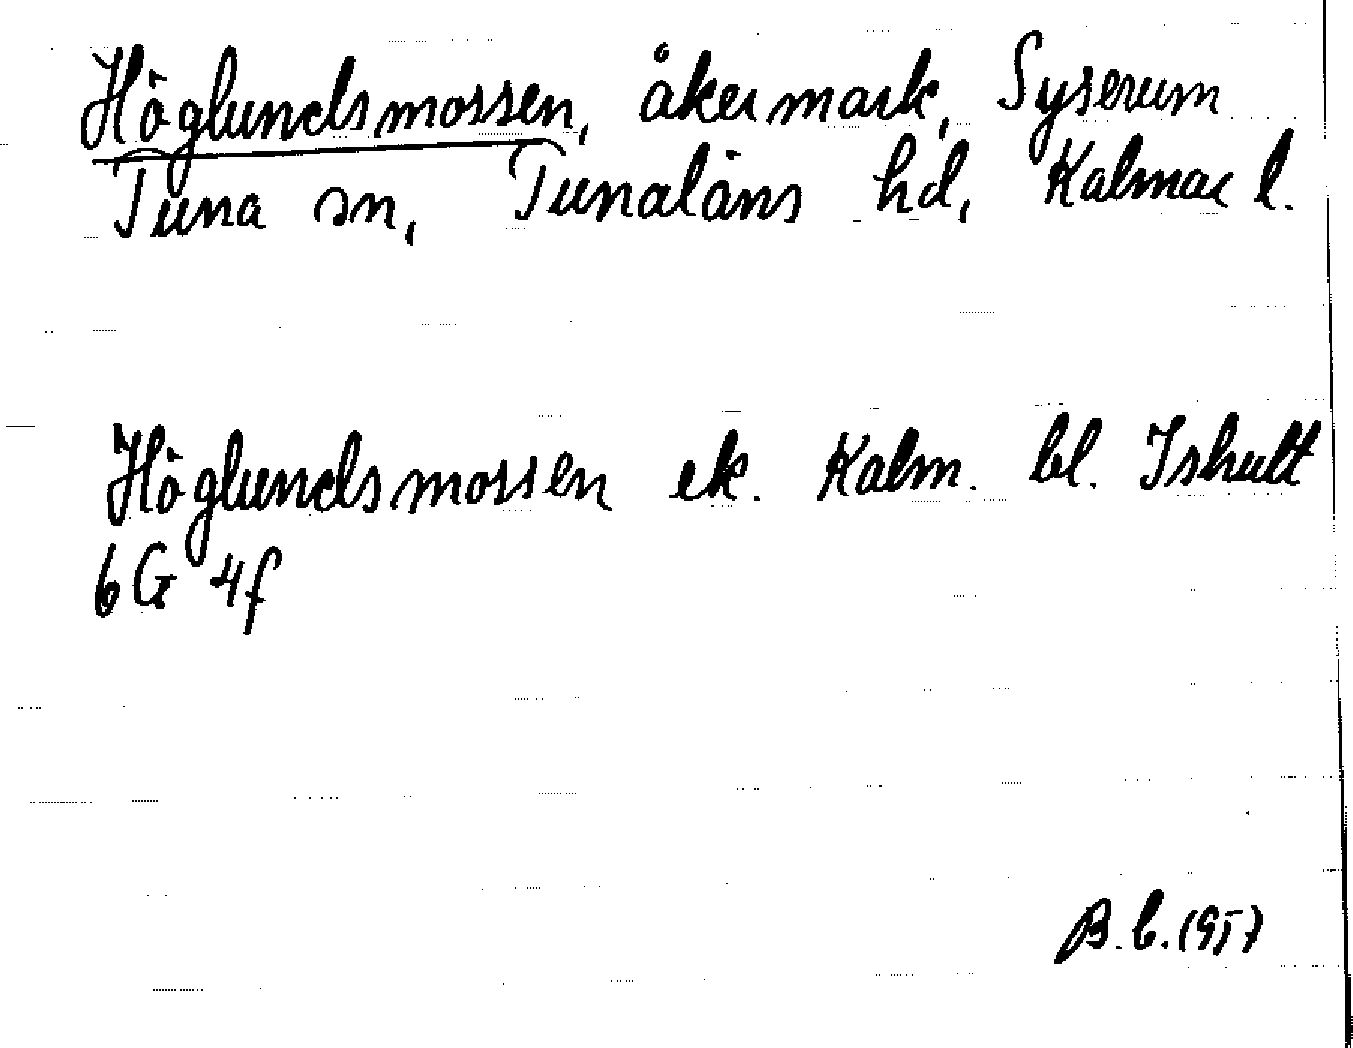 Höglundsmossen, åkermark, Syserum
Tuna sn, Tunaläns hd, Kalmar l.
Höglundsmossen ek. Kalm. bl. Ishult
6G 4f
B.L. (95)